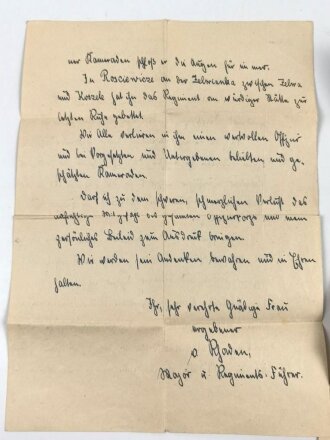 ner Kameraden schloß er die Augen für immer.
In Rosciewicze an der Zelwianka zwischen Zelwa
und Koszele hat ihn das Regiment an würdiger Stätte zur
letzten Ruhe gebettet.
Wir Alle verlieren in ihm einen wertvollen Offizier
und bei Vorgesetzten und Untergebenen beliebten und ge-
schätzten Kameraden.
Darf ich zu dem schweren, schmerzlichen Verlust das
aufrichtige des gesamten Offizierkorps und mein
persönliches Beileid zum Ausdruck bringen.
Wir werden sein Andenken bewahren und in Ehren
halten.
Ihr, sehr verehrte Gnädige Frau
ergebener
v Rhoden,
Major u. Regiments-Führer.